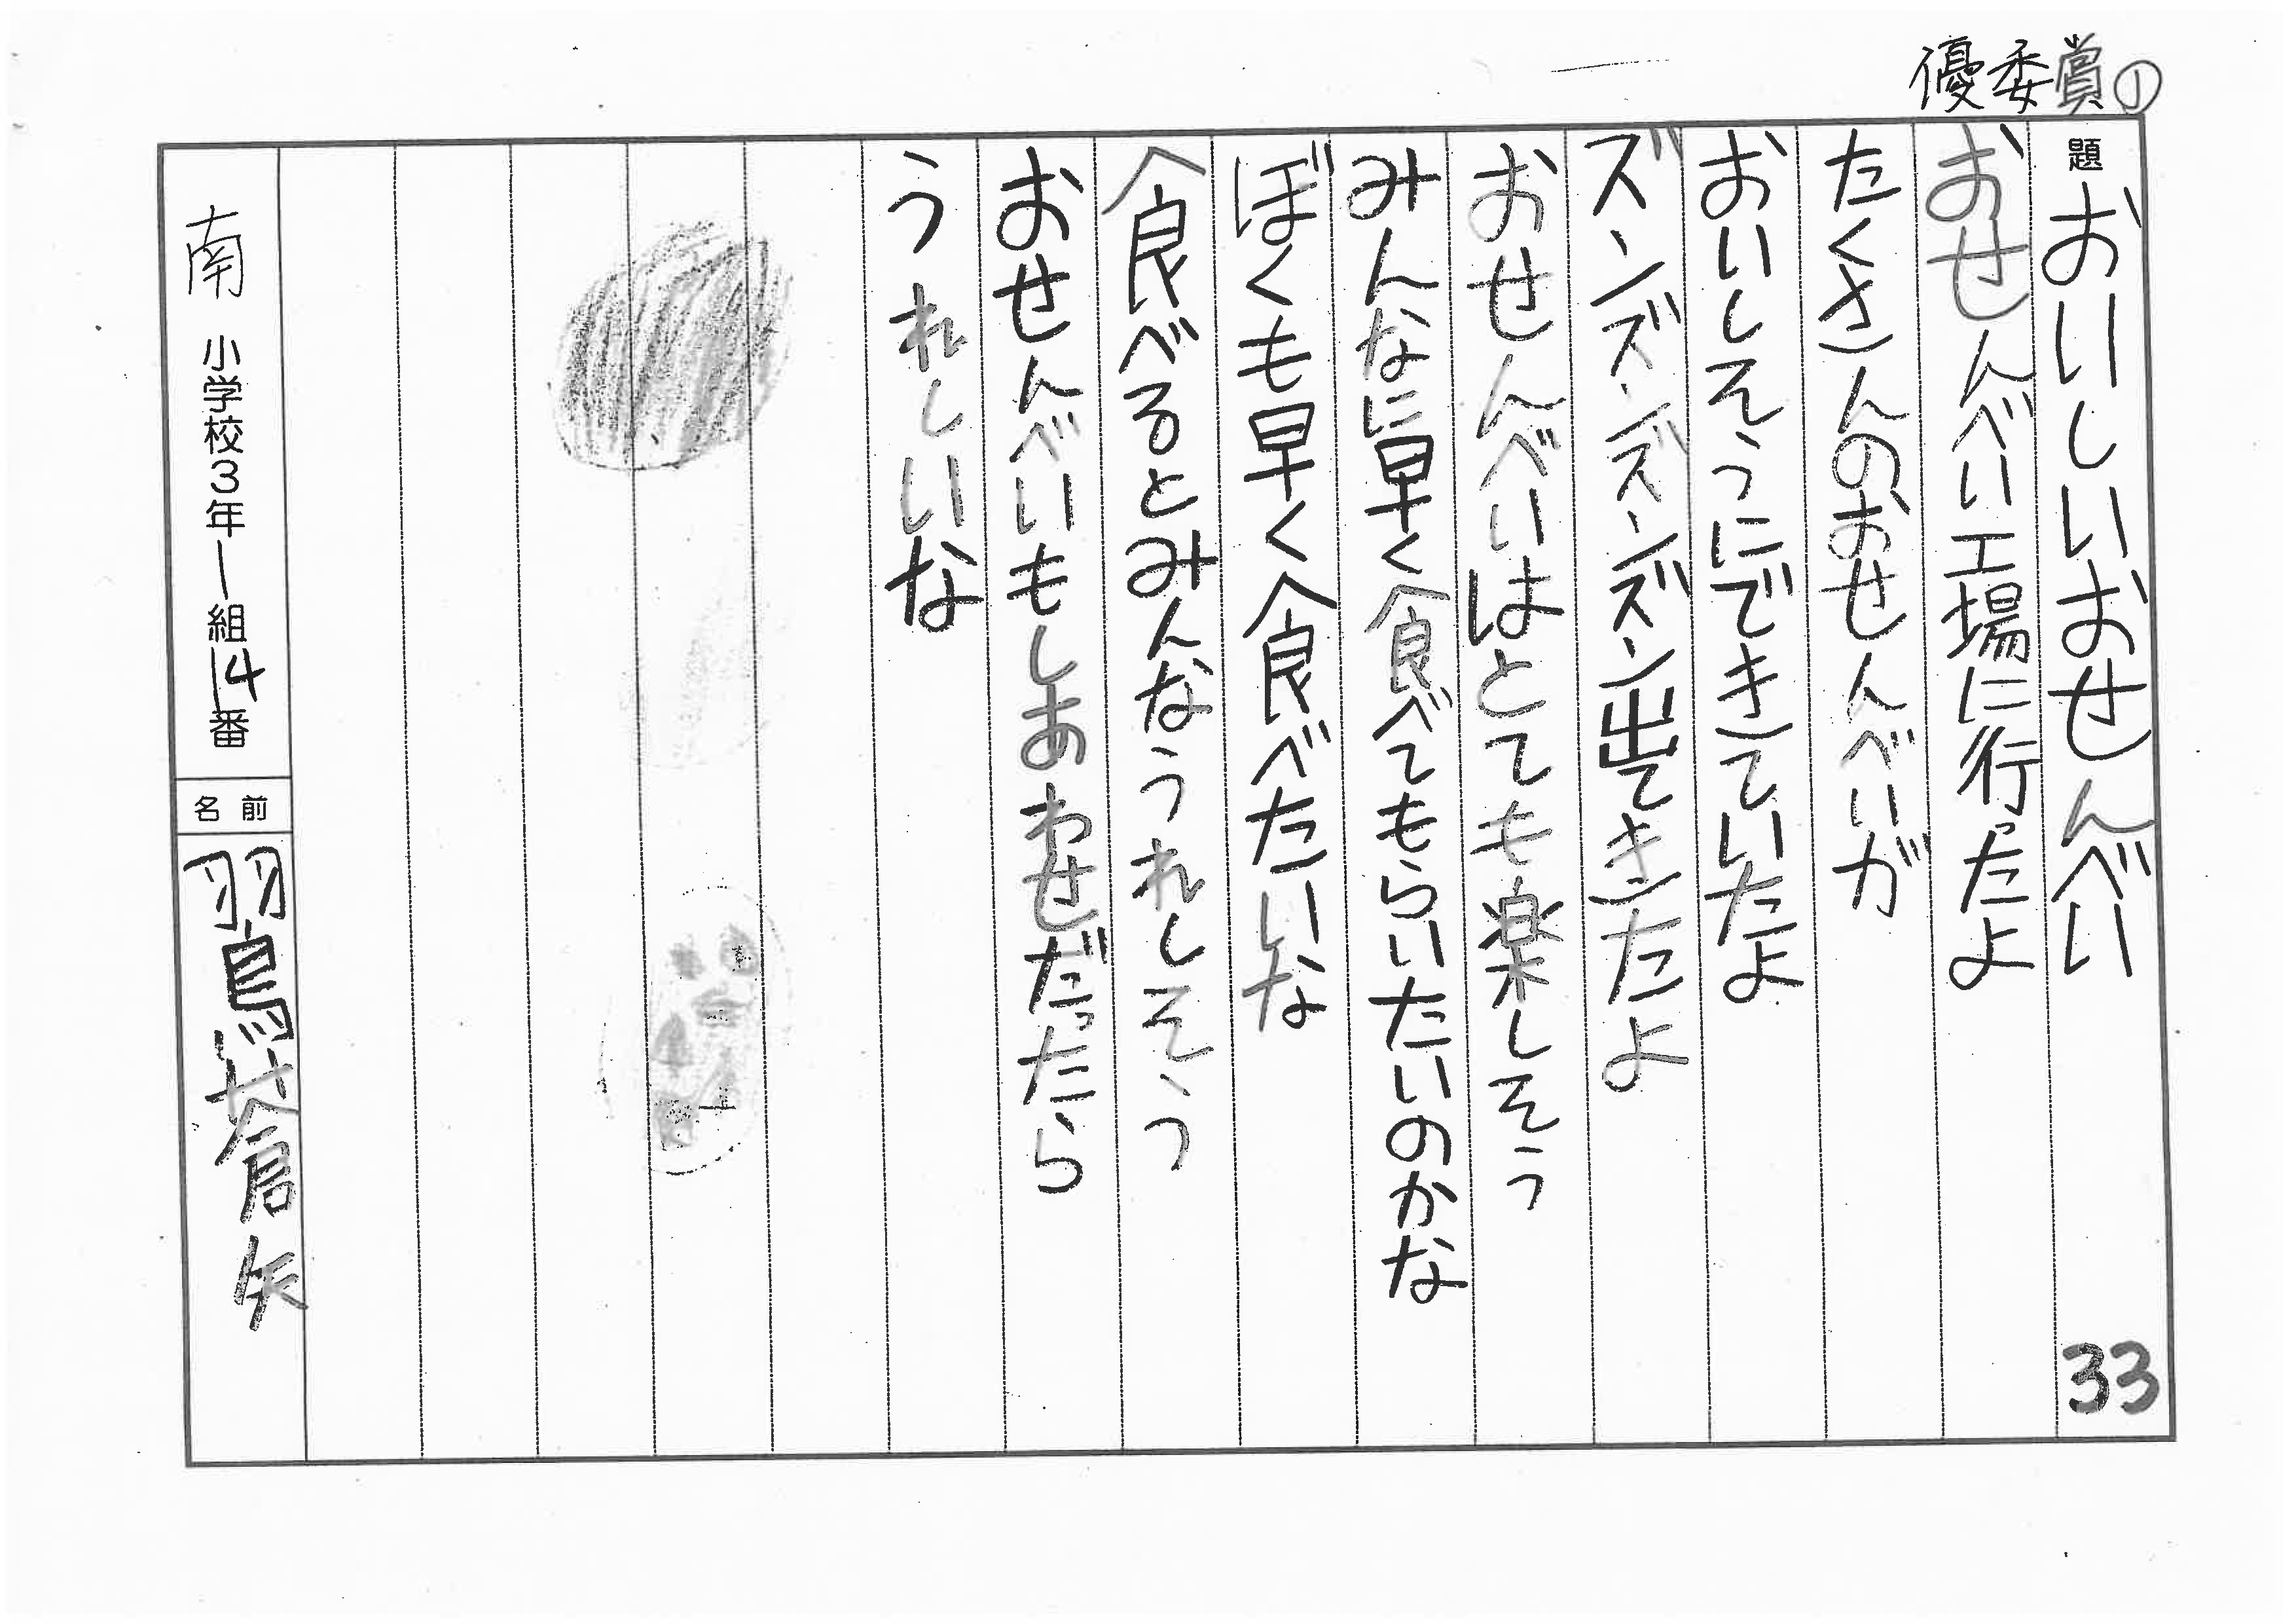 優委賞①
題 おいしいおせんべい
33
おせんべい工場に行ったよ
たくさんのおせんべいが
おいしそうにできていたよ
ズンズンズンズン出てきたよ
おせんべいはとても楽しそう
みんなに早く食べてもらいたいのかな
ぼくも早く食べたいな
食べるとみんなうれしそう
おせんべいもしあわせだったら
うれしいな
南小学校3年1組14番
名前 羽鳥蒼矢